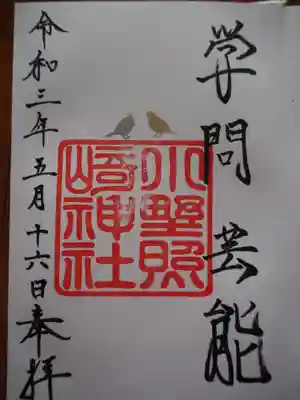 学問 芸能
小野照
崎神社
令和三年五月十六日奉拝